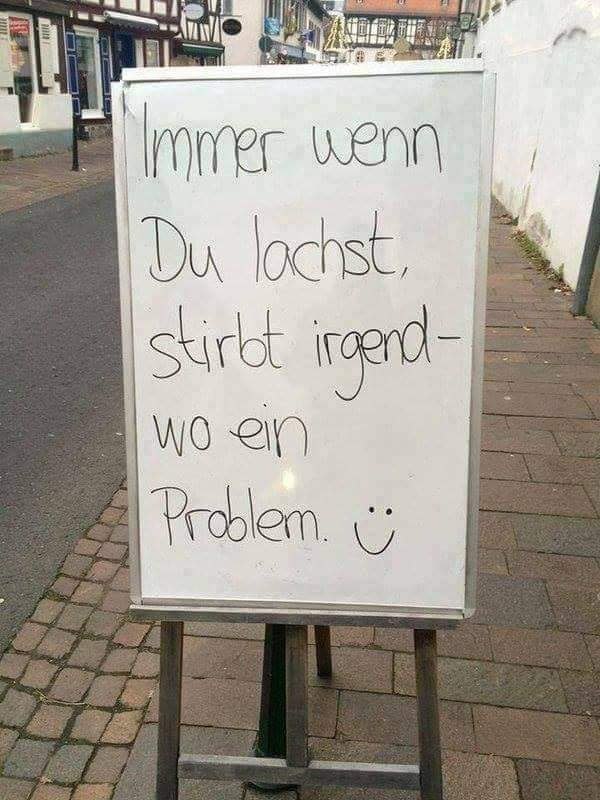 Immer wenn
Du lachst,
stirbt irgend-
wo ein
Problem. :)